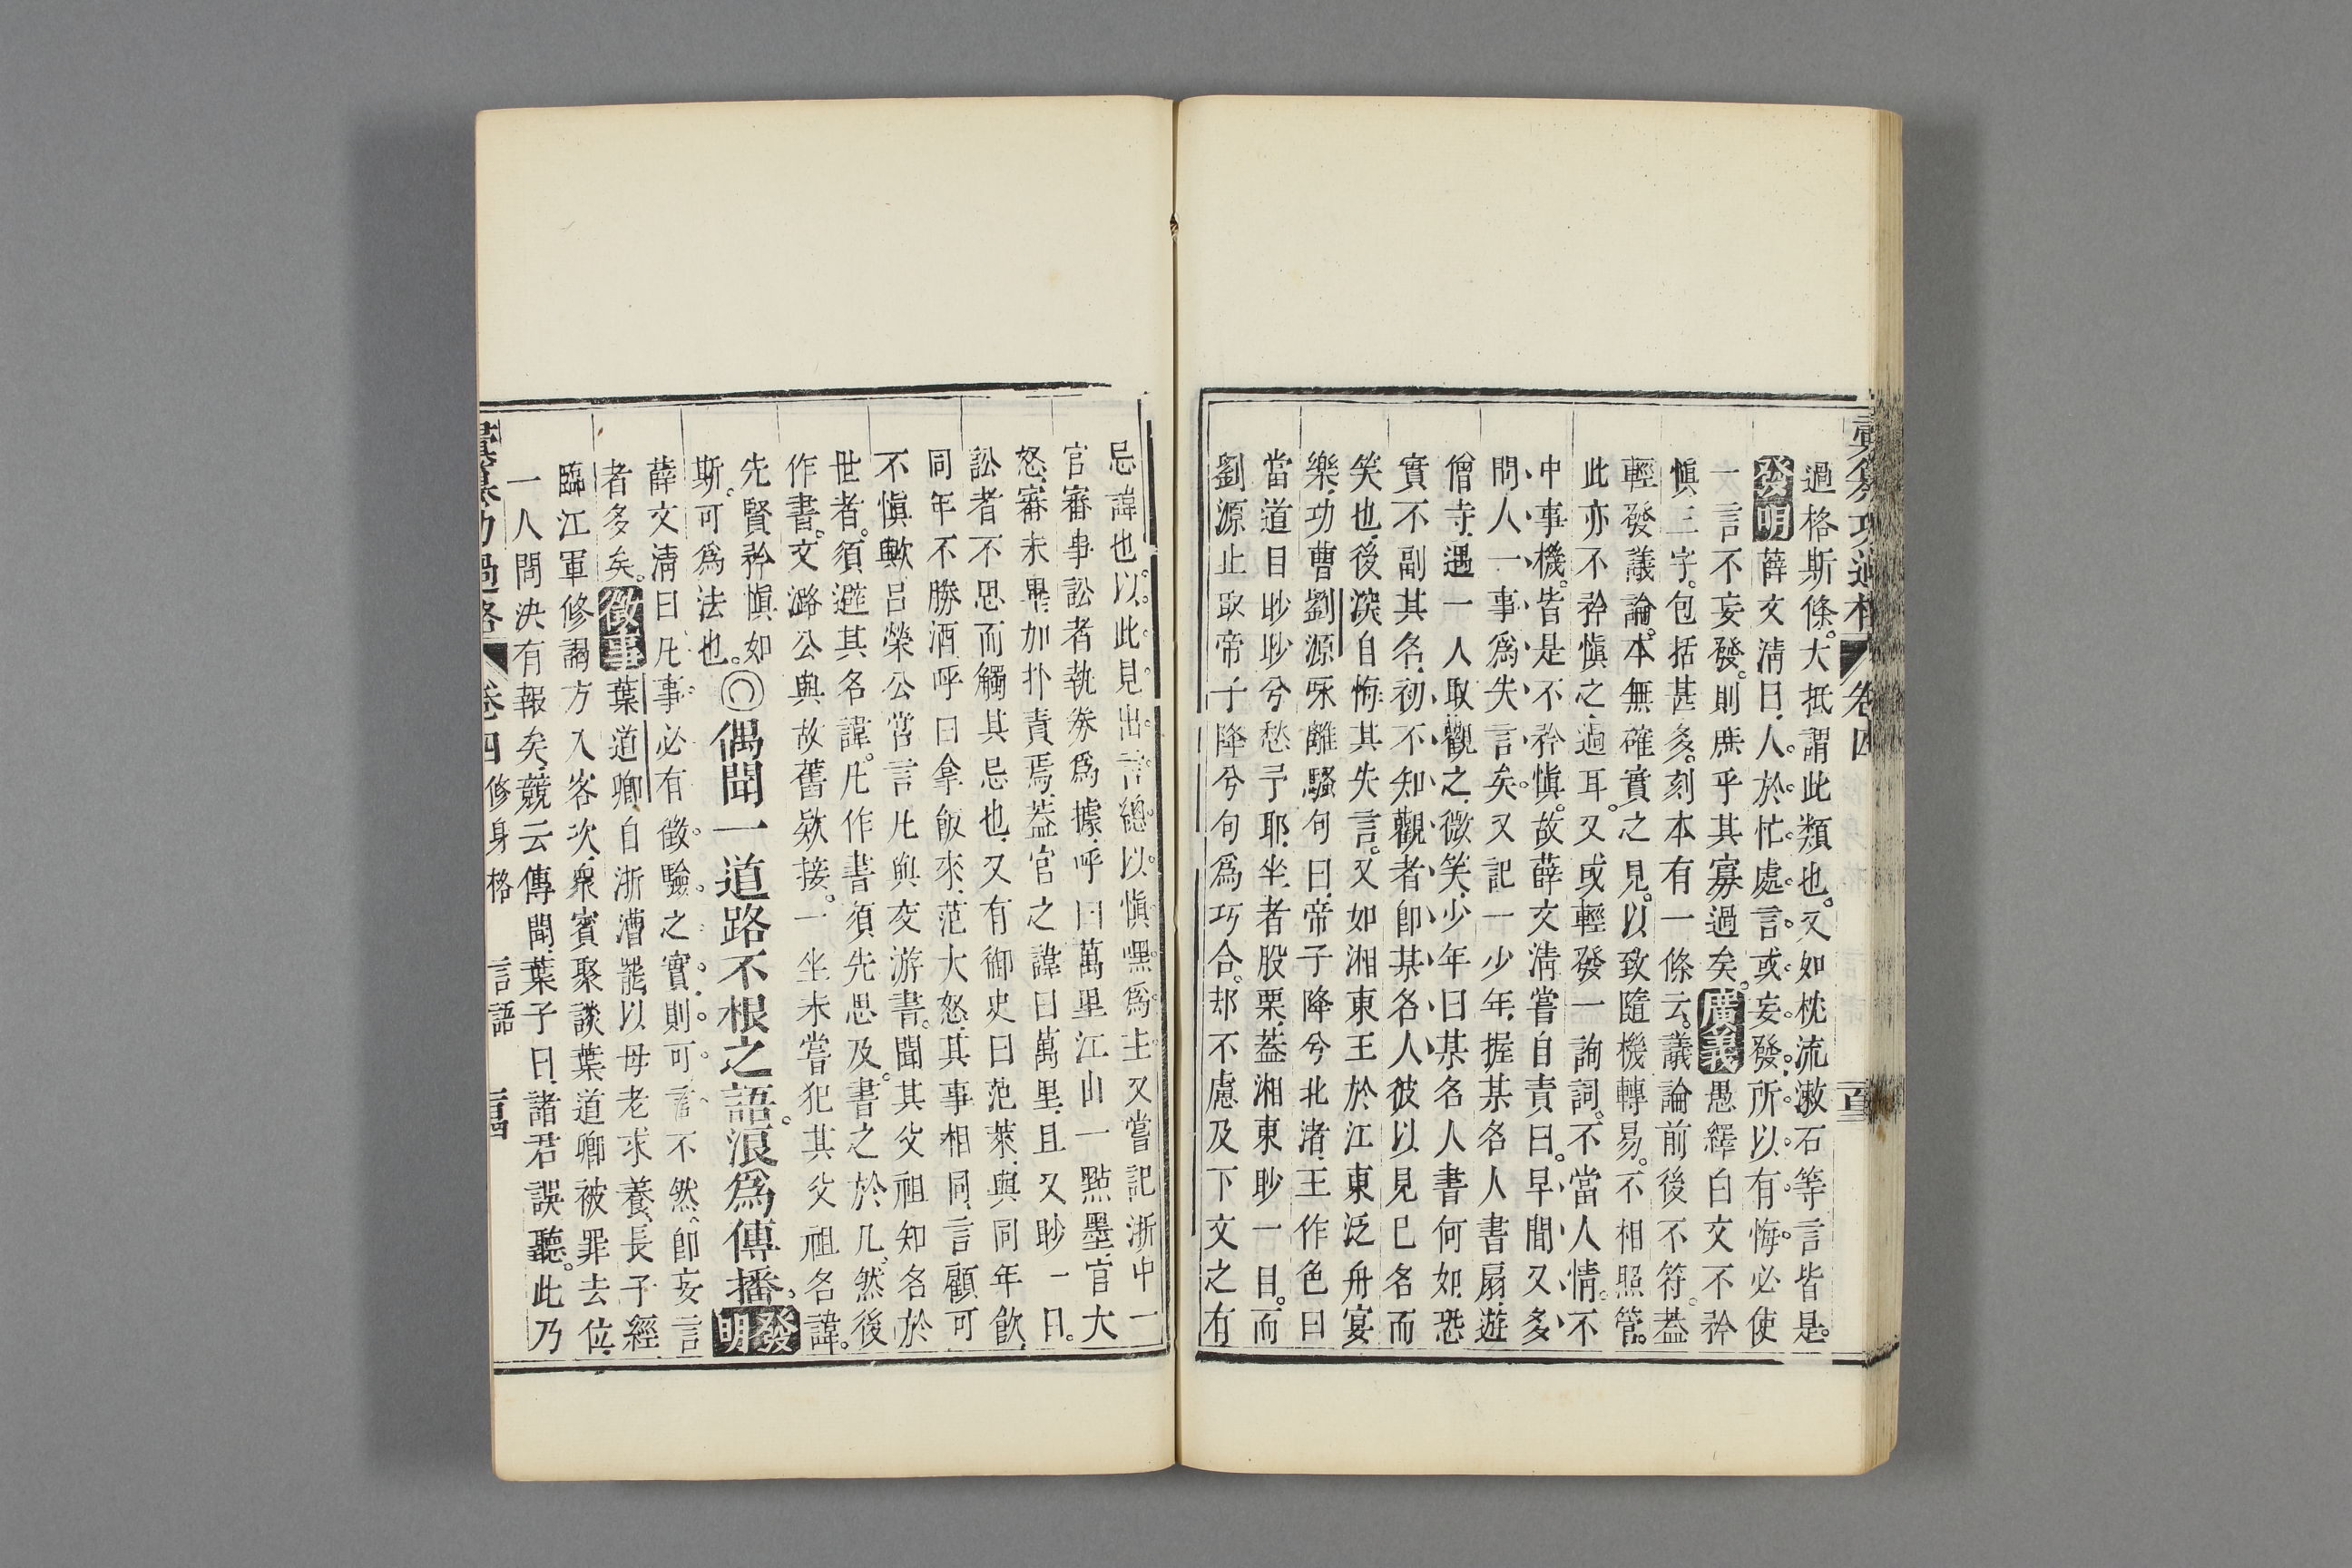 彙纂功過格 卷四 百三
過格斯條。大抵謂此類也。又如枕流漱石等言皆是。
發明 薛文淸曰、人於忙處言。或妄發。所以有悔。必使
一言不妄發。則庶乎其寡過矣。廣義 愚繹白文不矜
愼三字。包括甚多。刻本有一條云。議論前後不符。葢
輕發議論。本無確實之見。以致隨機轉易。不相照管。
此亦不矜愼之過耳。又或輕發一詢詞。不當人情。不
中事機。皆是不矜愼。故薛文淸嘗自責曰。早間又多
問人一事爲失言矣。又記一少年、握某名人書扇、遊
僧寺、遇一人取觀之、微笑、少年曰某名人書何如、恐
實不副其名、初不知觀者卽某名人、彼以見已名而
笑也、後深自悔其失言。又如湘東王於江東泛舟宴
樂、功曹劉源咏離騷句曰、帝子降兮北渚、王作色曰
當道目眇眇兮愁予耶、坐者股栗、葢湘東眇一目。而
劉源止取帝子降兮句爲巧合。却不慮及下文之有
忌諱也。以此見出言總以愼嘿爲主。又嘗記浙中一
官審事訟者執券爲據、呼曰萬里江山一點墨、官大
怒、審未畢加扑責焉、葢官之諱曰萬里、且又眇一目。
訟者不思而觸其忌也、又有御史曰范萊、與同年飮、
同年不勝酒呼曰拿飯來、范大怒、其事相同、言顧可
不愼歟、呂榮公嘗言凡與交游書。聞其父祖知名於
世者。須避其名諱。凡作書須先思及。書之於几。然後
作書。文潞公與故舊欵接。一坐未嘗犯其父祖名諱。
先賢矜愼如
斯。可爲法也。◎偶聞一道路不根之語。浪爲傳播。發明
薛文淸曰凡事必有徵驗之實。則可言。不然。卽妄言
者多矣。徵事 葉道卿自浙漕罷、以母老求養、長子經
臨江軍修謁方入客次、衆賓聚談葉道卿被罪去位、
一人問決有報矣、競云傳聞、葉子曰、諸君誤聽。此乃
彙纂功過格 卷四 修身格 言語 百四